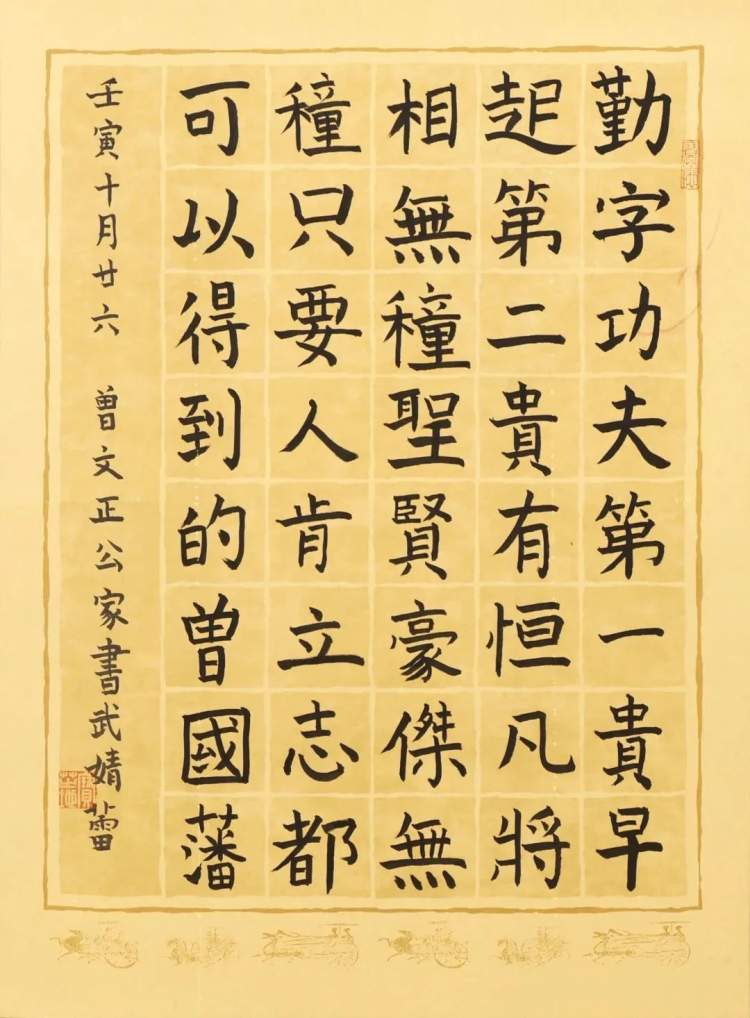 勤字功夫第一貴早
起第二貴有恒凡將
相無穜聖賢豪傑無
穜只要人肯立志都
可以得到的曾國藩
壬寅十月廿六 曾文正公家書武婧蕾